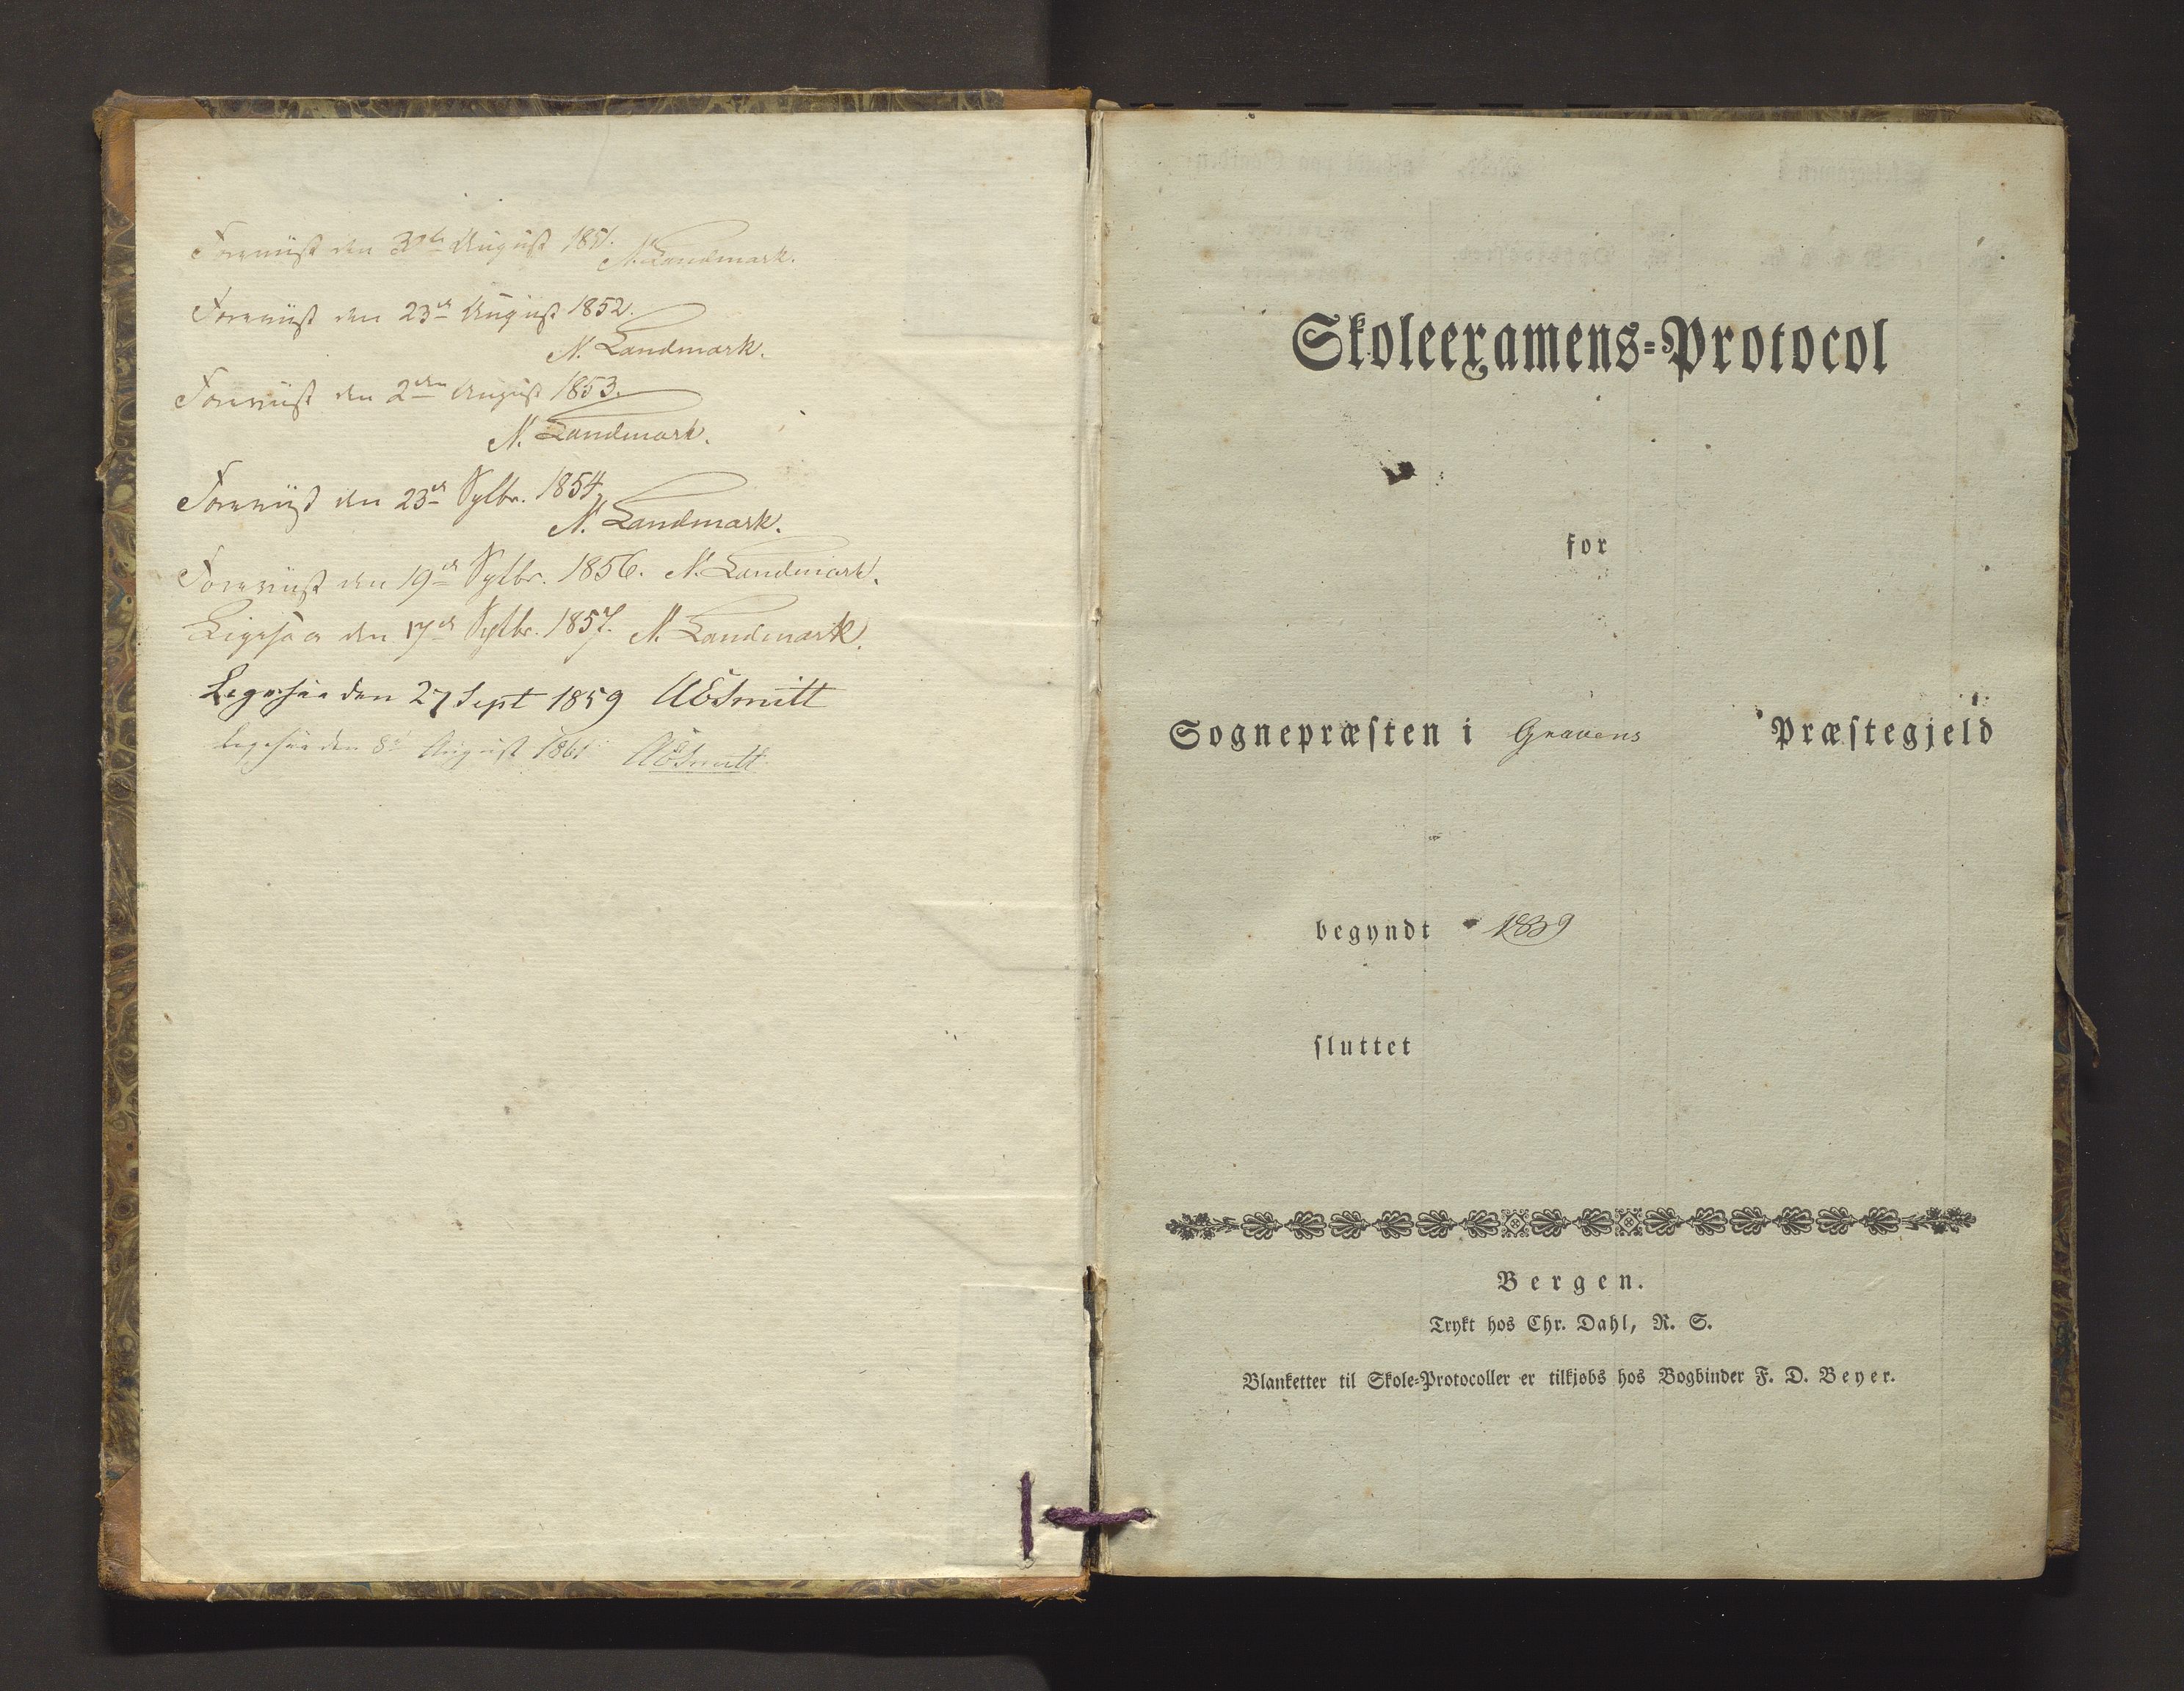 Foreviist den 30te August 1851. N. Landmark.
Foreviist den 23de August 1852.
N. Landmark.
Foreviist den 2den August 1853.
N. Landmark.
Foreviist den 23de Septbr. 1854.
N. Landmark.
Foreviist den 19de Septbr. 1856. N. Landmark.
Ligesaa den 17de Septbr. 1857. N. Landmark.
Ligesaa den 27 Sept 1859 Smitt
Ligesaa den 8de August 1861 Smitt
Skoleexamens-Protocol
for
Sognepræsten i Gravens Præstegjeld
begyndt 1839
sluttet
Bergen.
Trykt hos Chr. Dahl, R. S.
Blanketter til Skole-Protocoller er tilkjøbs hos Bogbinder F. D. Beyer.